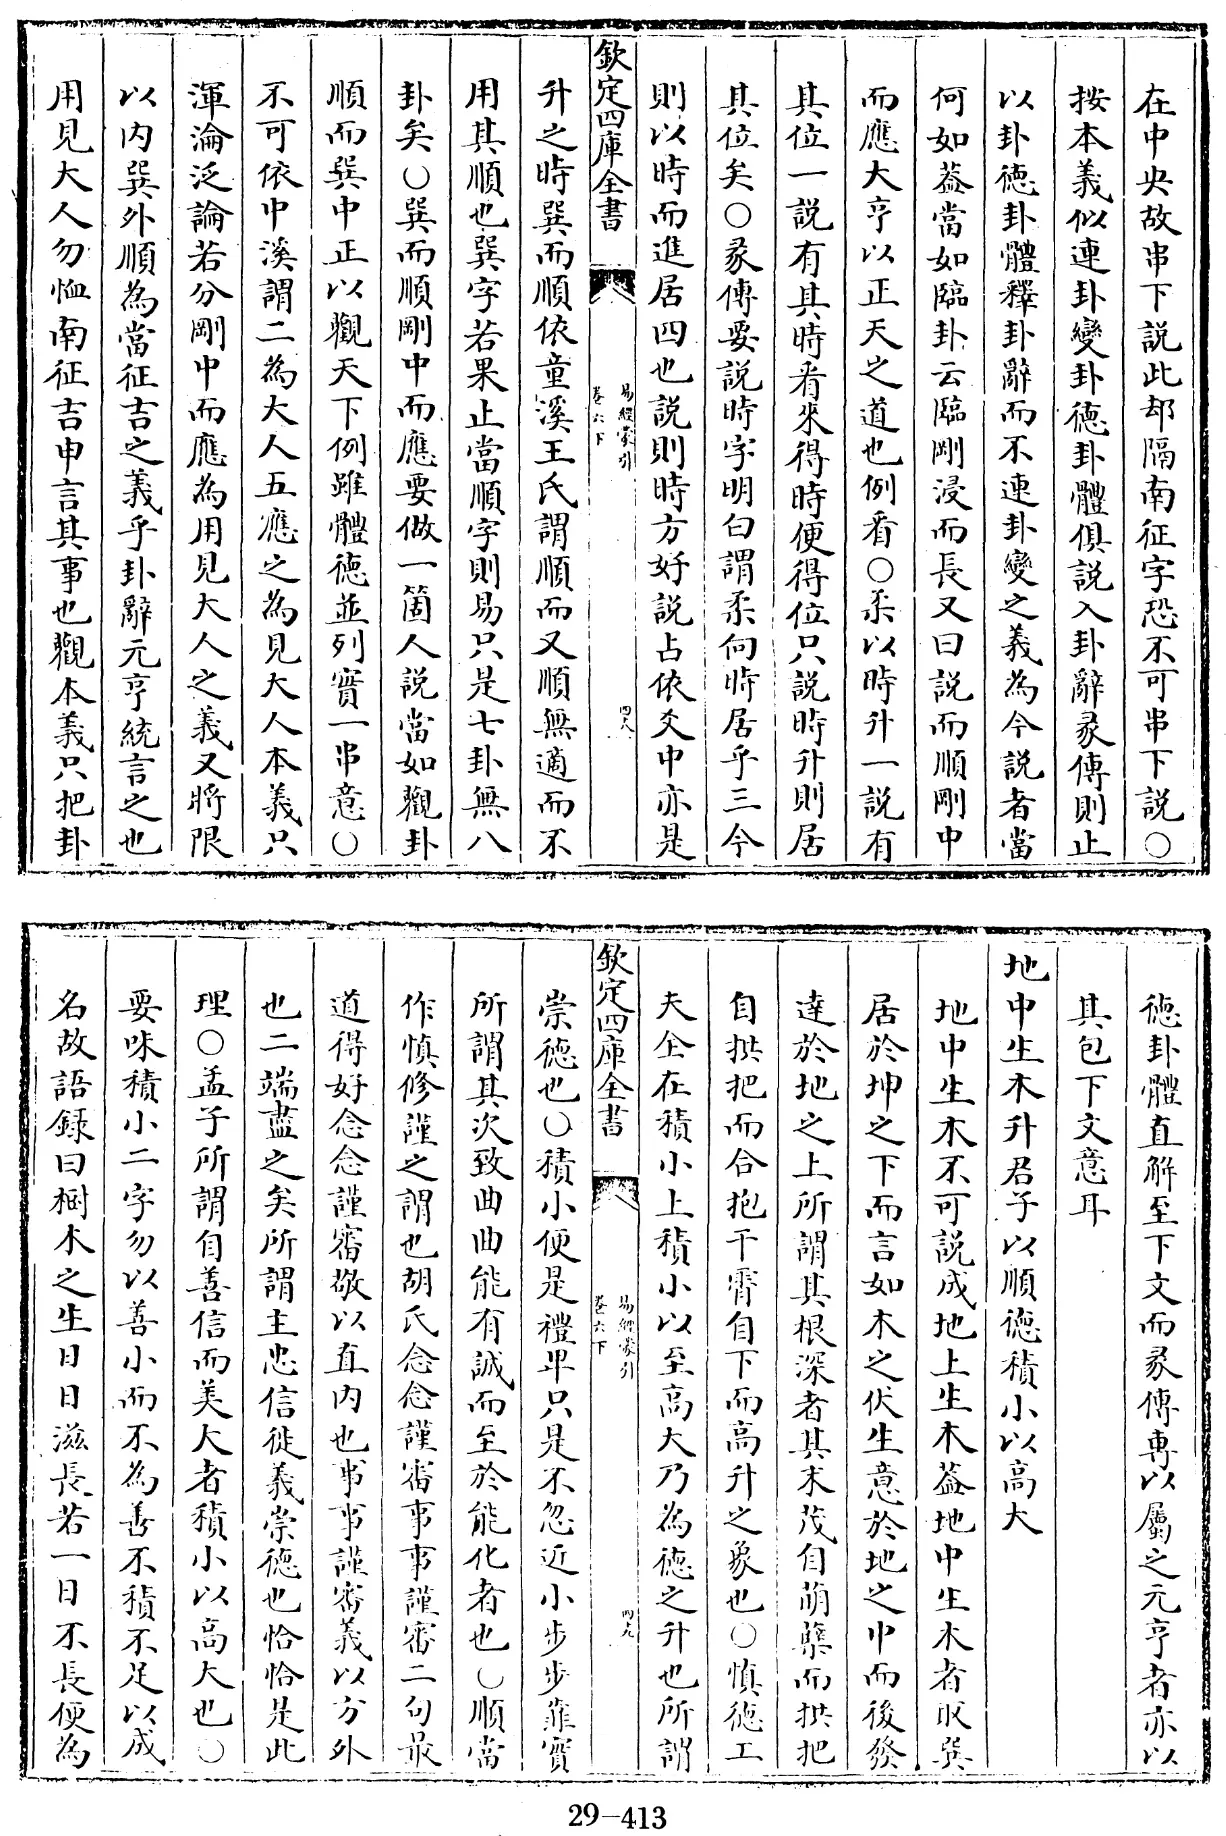 在中央故串下説此却隔南征字恐不可串下説○
按本義似連卦變卦德卦體俱説入卦辭彖傳則止
以卦德卦體釋卦辭而不連卦變之義為今説者當
何如葢當如臨卦云臨剛浸而長又曰説而順剛中
而應大亨以正天之道也例看○柔以時升一説有
其位一説有其時看來得時便得位只説時升則居
其位矣○彖傳要説時字明白謂柔向時居乎三今
則以時而進居四也説則時方好説占依爻中亦是
欽定四庫全書
易經蒙引
卷六下
四八
升之時巽而順依童溪王氏謂順而又順無適而不
用其順也巽字若果止當順字則易只是七卦無八
卦矣○巽而順剛中而應要做一箇人説當如觀卦
順而巽中正以觀天下例雖體德並列實一串意○
不可依中溪謂二為大人五應之為見大人本義只
渾淪泛論若分剛中而應為用見大人之義又將限
以内巽外順為當征吉之義乎卦辭元亨統言之也
用見大人勿恤南征吉申言其事也觀本義只把卦
德卦體直解至下文而彖傳專以屬之元亨者亦以
其包下文意耳
地中生木升君子以順德積小以高大
地中生木不可説成地上生木葢地中生木者取巽
居於坤之下而言如木之伏生意於地之中而後發
達於地之上所謂其根深者其末茂自萌蘖而拱把
自拱把而合抱干霄自下而高升之象也○慎德工
夫全在積小上積小以至高大乃為德之升也所謂
欽定四庫全書
易經蒙引
卷六下
四九
崇德也○積小便是禮卑只是不忽近小步步靠實
所謂其次致曲曲能有誠而至於能化者也○順當
作慎修謹之謂也胡氏念念謹審事事謹審二句最
道得好念念謹審敬以直内也事事謹審義以方外
也二端盡之矣所謂主忠信徙義崇德也恰恰是此
理○孟子所謂自善信而美大者積小以高大也○
要味積小二字勿以善小而不為善不積不足以成
名故語録曰樹木之生日日滋長若一日不長便為
29-413